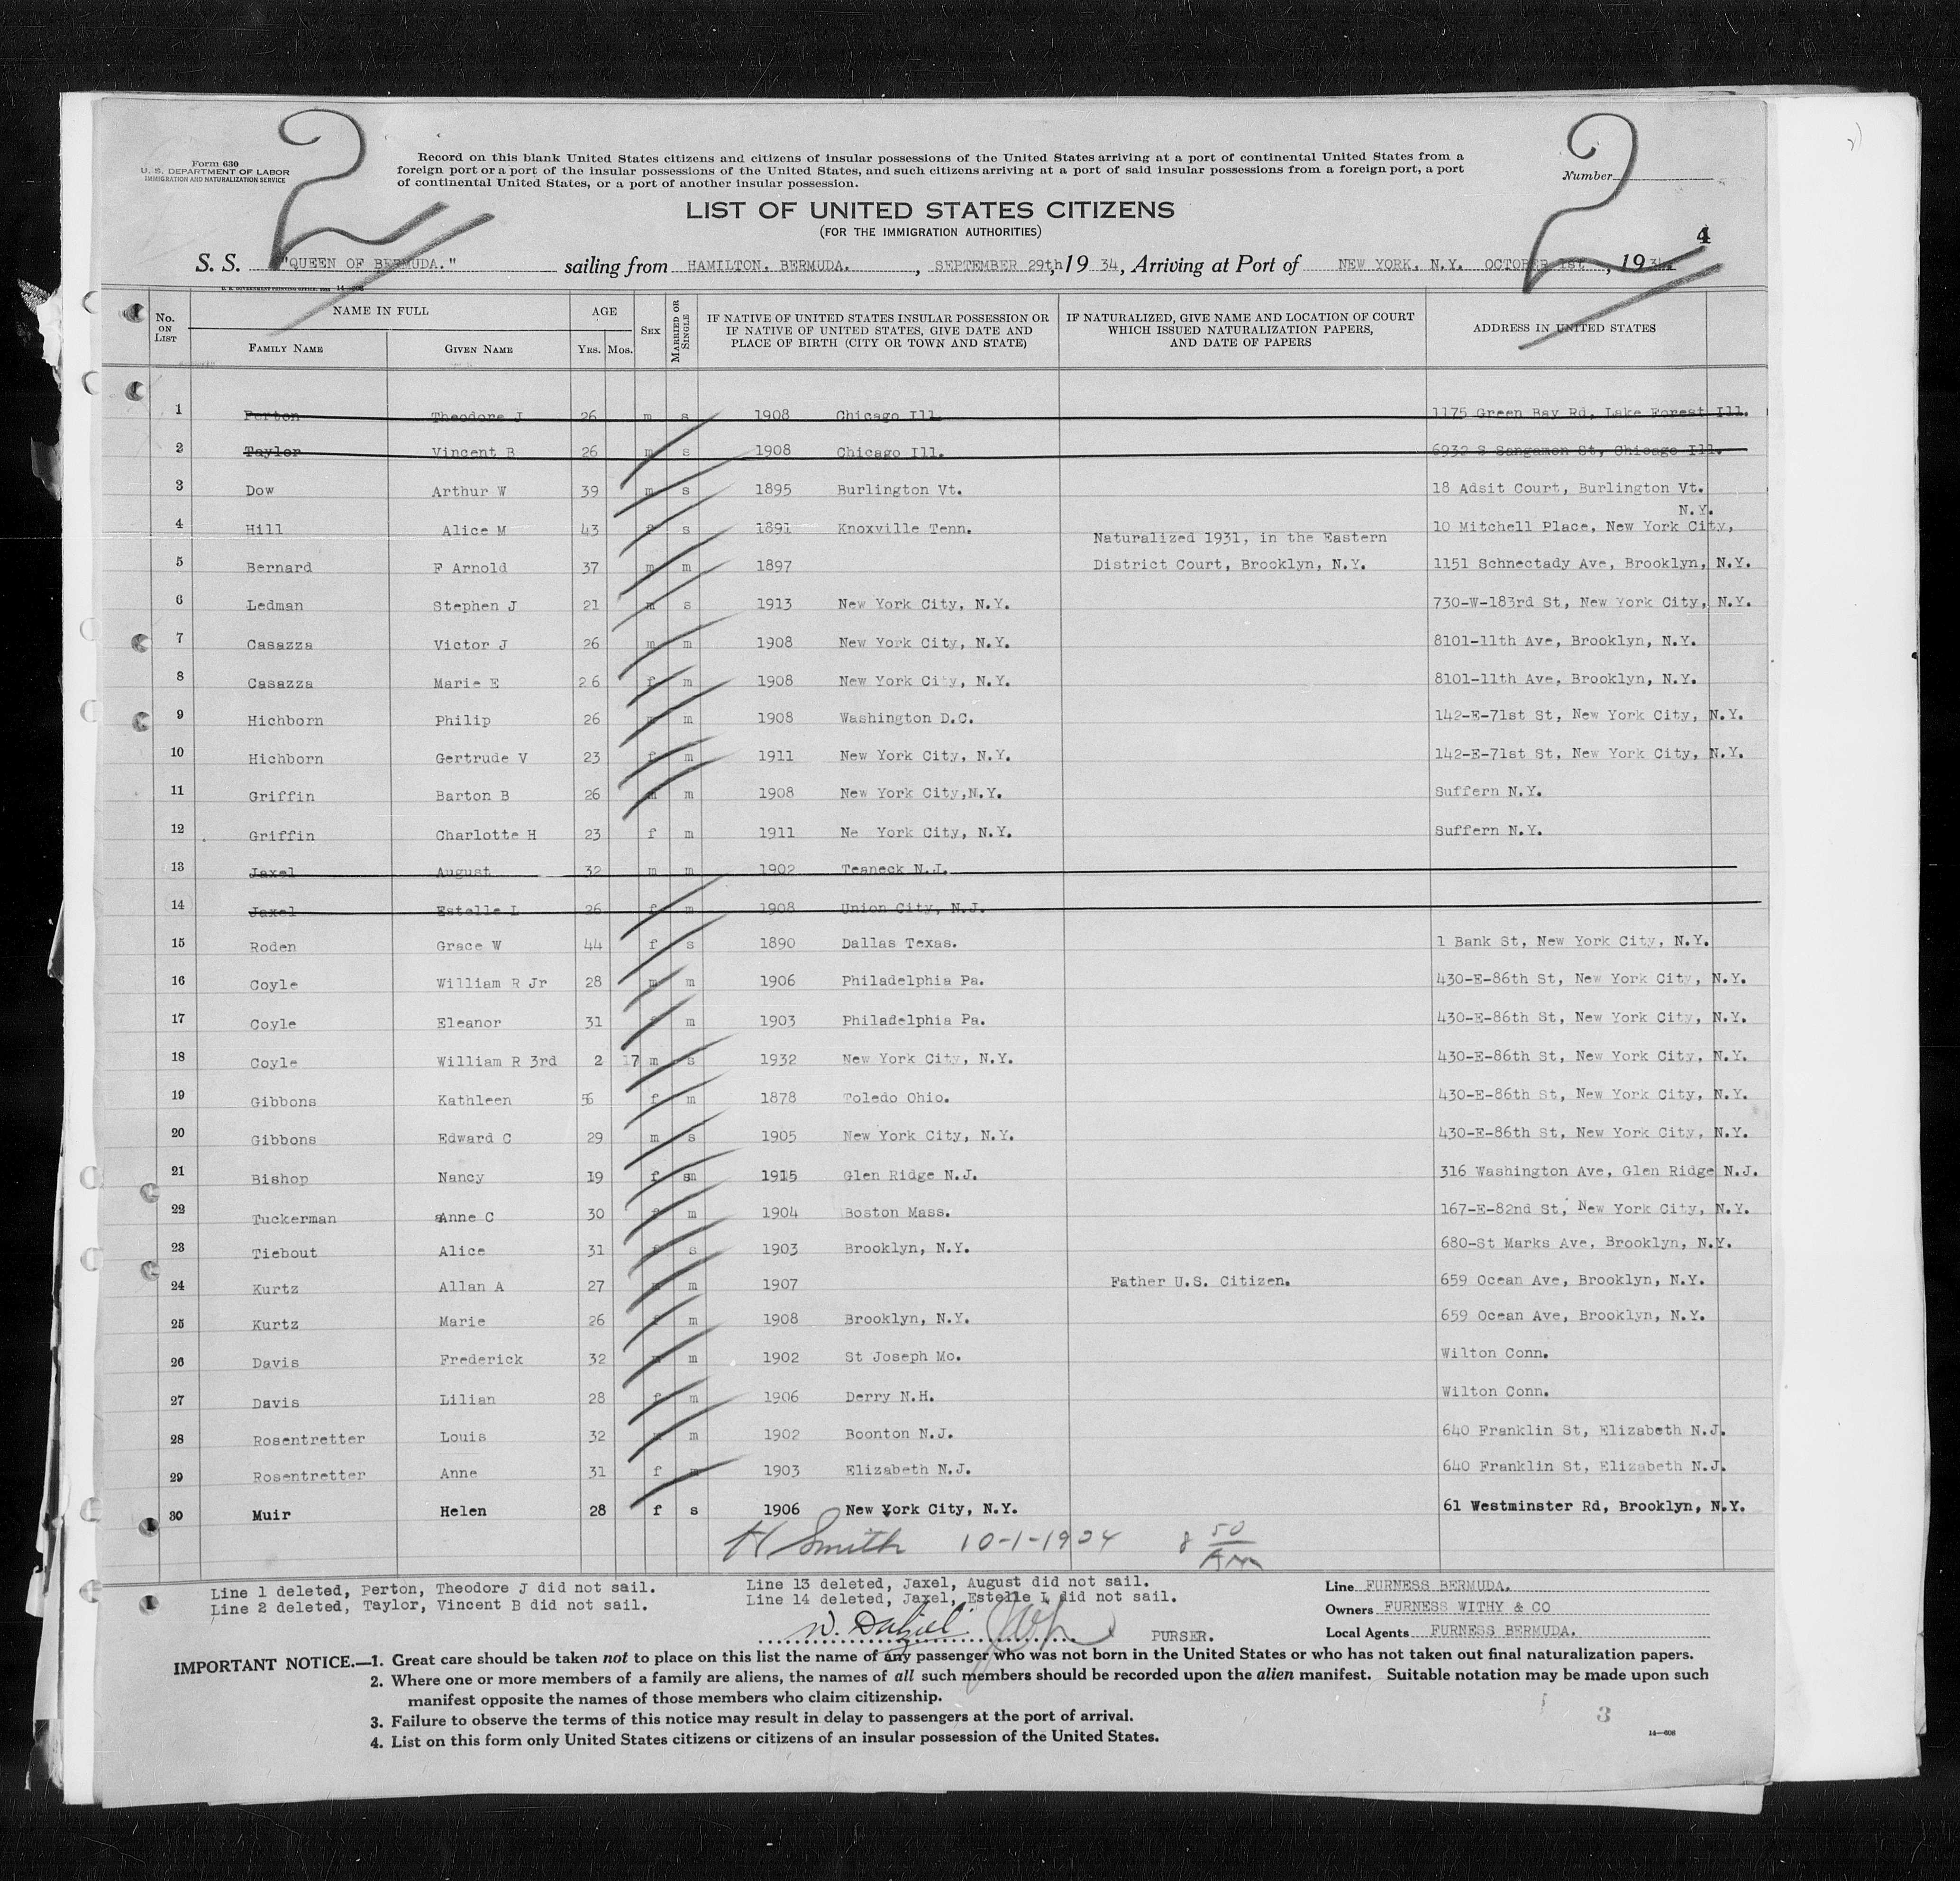 2 2
Form 630
U. S. DEPARTMENT OF LABOR
IMMIGRATION AND NATURALIZATION SERVICE
Record on this blank United States citizens and citizens of insular possessions of the United States arriving at a port of continental United States from a
foreign port or a port of the insular possessions of the United States, and such citizens arriving at a port of said insular possessions from a foreign port, a port
of continental United States, or a port of another insular possession.
Number
LIST OF UNITED STATES CITIZENS
(FOR THE IMMIGRATION AUTHORITIES)
4
S. S. "QUEEN OF BERMUDA." sailing from HAMILTON, BERMUDA. , SEPTEMBER 29th, 19 34, Arriving at Port of NEW YORK, N.Y. OCTOBER 1st , 19 34.
U. S. GOVERNMENT PRINTING OFFICE 14—608
No. ON LIST NAME IN FULL FAMILY NAME GIVEN NAME AGE YRS. MOS. SEX MARRIED OR SINGLE
IF NATIVE OF UNITED STATES INSULAR POSSESSION OR IF NATIVE OF UNITED STATES, GIVE DATE AND PLACE OF BIRTH (CITY OR TOWN AND STATE)
IF NATURALIZED, GIVE NAME AND LOCATION OF COURT WHICH ISSUED NATURALIZATION PAPERS, AND DATE OF PAPERS
ADDRESS IN UNITED STATES
1 Perton Theodore J 26 m s 1908 Chicago Ill. 1175 Green Bay Rd, Lake Forest Ill.
2 Taylor Vincent B 26 m s 1908 Chicago Ill. 6932 S Sangamon St, Chicago Ill.
3 Dow Arthur W 39 m s 1895 Burlington Vt. 18 Adsit Court, Burlington Vt.
N.Y.
4 Hill Alice M 43 f s 1891 Knoxville Tenn. 10 Mitchell Place, New York City,
Naturalized 1931, in the Eastern
5 Bernard F Arnold 37 m m 1897 District Court, Brooklyn, N.Y. 1151 Schnectady Ave, Brooklyn, N.Y.
6 Ledman Stephen J 21 m s 1913 New York City, N.Y. 730-W-183rd St, New York City, N.Y.
7 Casazza Victor J 26 m m 1908 New York City, N.Y. 8101-11th Ave, Brooklyn, N.Y.
8 Casazza Marie E 26 f m 1908 New York City, N.Y. 8101-11th Ave, Brooklyn, N.Y.
9 Hichborn Philip 26 m m 1908 Washington D.C. 142-E-71st St, New York City, N.Y.
10 Hichborn Gertrude V 23 f m 1911 New York City, N.Y. 142-E-71st St, New York City, N.Y.
11 Griffin Barton B 26 m m 1908 New York City,N.Y. Suffern N.Y.
12 Griffin Charlotte H 23 f m 1911 Ne York City, N.Y. Suffern N.Y.
13 Jaxel August 32 m m 1902 Teaneck N.J.
14 Jaxel Estelle L 26 f m 1908 Union City, N.J.
15 Roden Grace W 44 f s 1890 Dallas Texas. 1 Bank St, New York City, N.Y.
16 Coyle William R Jr 28 m m 1906 Philadelphia Pa. 430-E-86th St, New York City, N.Y.
17 Coyle Eleanor 31 f m 1903 Philadelphia Pa. 430-E-86th St, New York City, N.Y.
18 Coyle William R 3rd 2 17 m s 1932 New York City, N.Y. 430-E-86th St, New York City, N.Y.
19 Gibbons Kathleen 56 f m 1878 Toledo Ohio. 430-E-86th St, New York City, N.Y.
20 Gibbons Edward C 29 m s 1905 New York City, N.Y. 430-E-86th St, New York City, N.Y.
21 Bishop Nancy 19 f sm 1915 Glen Ridge N.J. 316 Washington Ave, Glen Ridge N.J.
22 Tuckerman Anne C 30 f m 1904 Boston Mass. 167-E-82nd St, New York City, N.Y.
23 Tiebout Alice 31 f s 1903 Brooklyn, N.Y. 680-St Marks Ave, Brooklyn, N.Y.
24 Kurtz Allan A 27 m m 1907 Father U.S. Citizen. 659 Ocean Ave, Brooklyn, N.Y.
25 Kurtz Marie 26 f m 1908 Brooklyn, N.Y. 659 Ocean Ave, Brooklyn, N.Y.
26 Davis Frederick 32 m m 1902 St Joseph Mo. Wilton Conn.
27 Davis Lilian 28 f m 1906 Derry N.H. Wilton Conn.
28 Rosentretter Louis 32 m m 1902 Boonton N.J. 640 Franklin St, Elizabeth N.J.
29 Rosentretter Anne 31 f m 1903 Elizabeth N.J. 640 Franklin St, Elizabeth N.J.
30 Muir Helen 28 f s 1906 New York City, N.Y. 61 Westminster Rd, Brooklyn, N.Y.
H Smith 10-1-1934 8 50 Am
Line 1 deleted, Perton, Theodore J did not sail. Line 13 deleted, Jaxel, August did not sail. Line FURNESS BERMUDA.
Line 2 deleted, Taylor, Vincent B did not sail. Line 14 deleted, Jaxel, Estelle L did not sail. Owners FURNESS WITHY & CO
PURSER. Local Agents FURNESS BERMUDA.
IMPORTANT NOTICE.—1. Great care should be taken not to place on this list the name of any passenger who was not born in the United States or who has not taken out final naturalization papers.
2. Where one or more members of a family are aliens, the names of all such members should be recorded upon the alien manifest. Suitable notation may be made upon such
manifest opposite the names of those members who claim citizenship.
3. Failure to observe the terms of this notice may result in delay to passengers at the port of arrival.
4. List on this form only United States citizens or citizens of an insular possession of the United States.
3
14—608